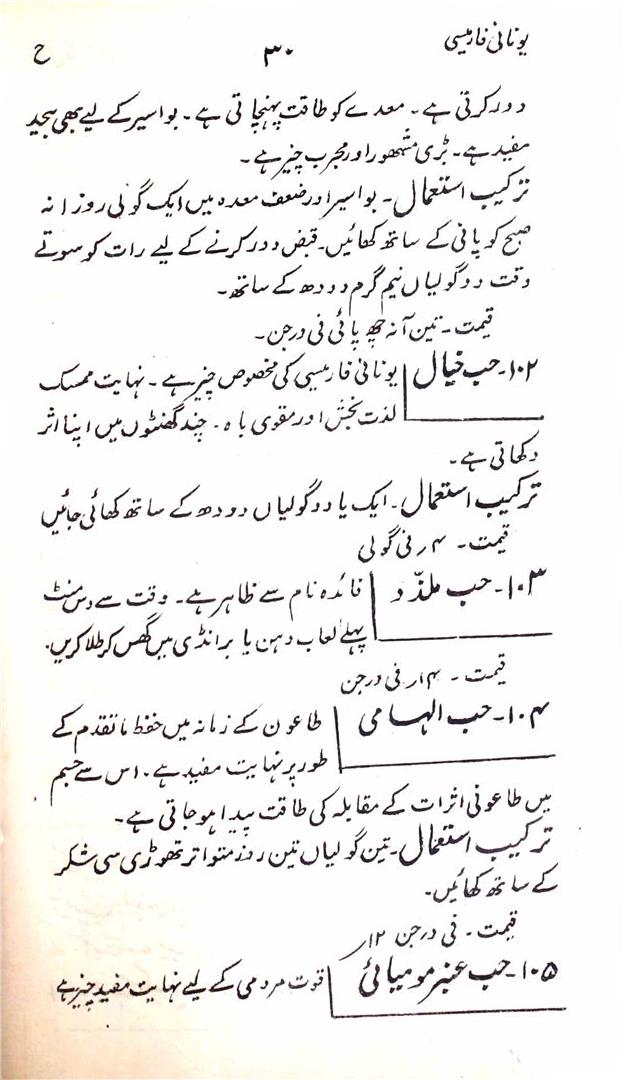 یونانی فارمیسی
۳۰
ح
دور کرتی ہے۔ معدے کو طاقت پہنچاتی ہے۔ بواسیر کے لیے بھی بیحد
مفید ہے۔ بڑی مشہور اور مجرب چیز ہے۔
ترکیب استعمال۔ بواسیر اور ضعف معدہ میں ایک گولی روزانہ
صبح کو پانی کے ساتھ کھائیں۔ قبض دور کرنے کے لیے رات کو سوتے
وقت دو گولیاں نیم گرم دودھ کے ساتھ۔
قیمت۔ تین آنہ چھ پائی فی درجن۔
۱۰۲۔ حب خیال
یونانی فارمیسی کی مخصوص چیز ہے۔ نہایت ممسک
لذت بخش اور مقوی باہ۔ چند گھنٹوں میں اپنا اثر
دکھاتی ہے۔
ترکیب استعمال۔ ایک یا دو گولیاں دودھ کے ساتھ کھائی جائیں
قیمت۔ ۴؍ فی گولی
۱۰۳۔ حب ملذّذ
فائدہ نام سے ظاہر ہے۔ وقت سے دس منٹ
پہلے لعاب دہن یا برانڈی میں گھس کر طلا کریں۔
قیمت۔ ۱۴؍ فی درجن
۱۰۴۔ حب الہامی
طاعون کے زمانہ میں حفظ ماتقدم کے
طور پر نہایت مفید ہے۔ اس سے جسم
میں طاعونی اثرات کے مقابلہ کی طاقت پیدا ہو جاتی ہے۔
ترکیب استعمال۔ تین گولیاں تین روز متواتر تھوڑی سی شکر
کے ساتھ کھائیں۔
قیمت۔ فی درجن ۱۲؍
۱۰۵۔ حب عنبر مومیائی
قوت مردمی کے لیے نہایت مفید چیز ہے